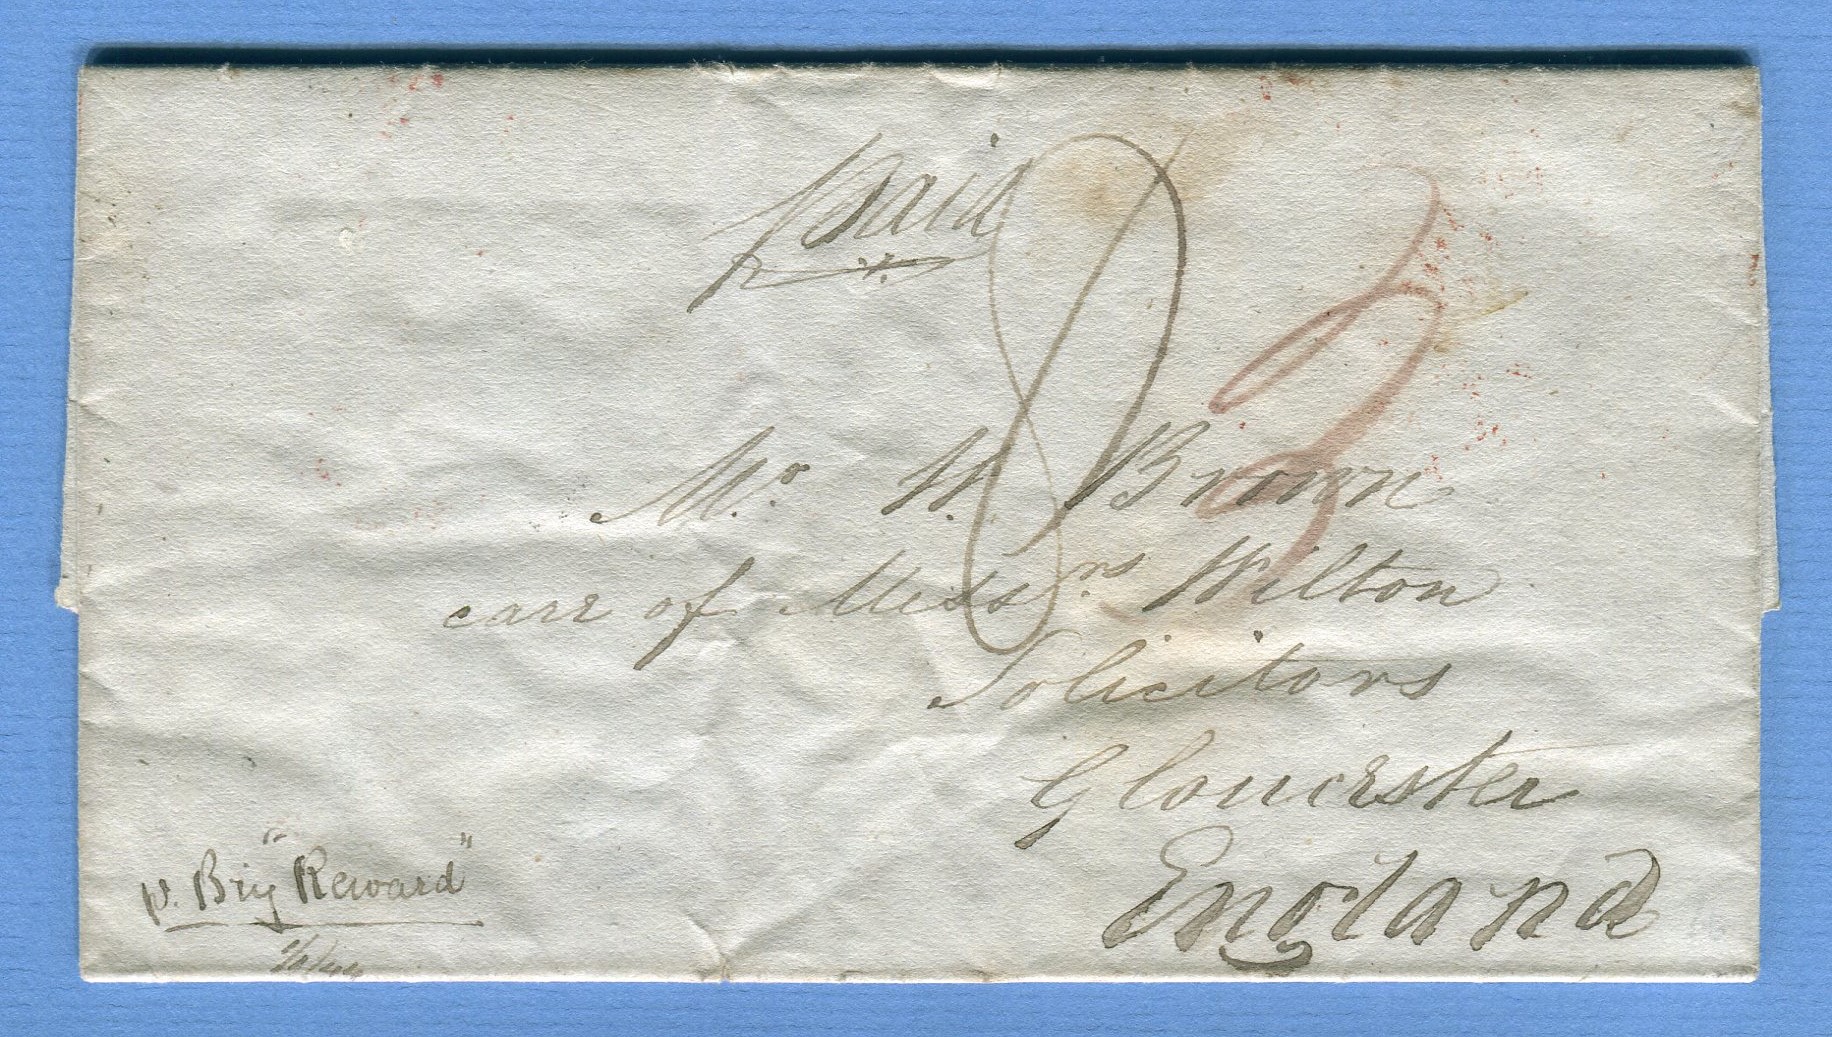 paid
8
Mr. W. Brown
care of Messrs. Wilton
Solicitors
Gloucester
England
p. Brig "Reward"